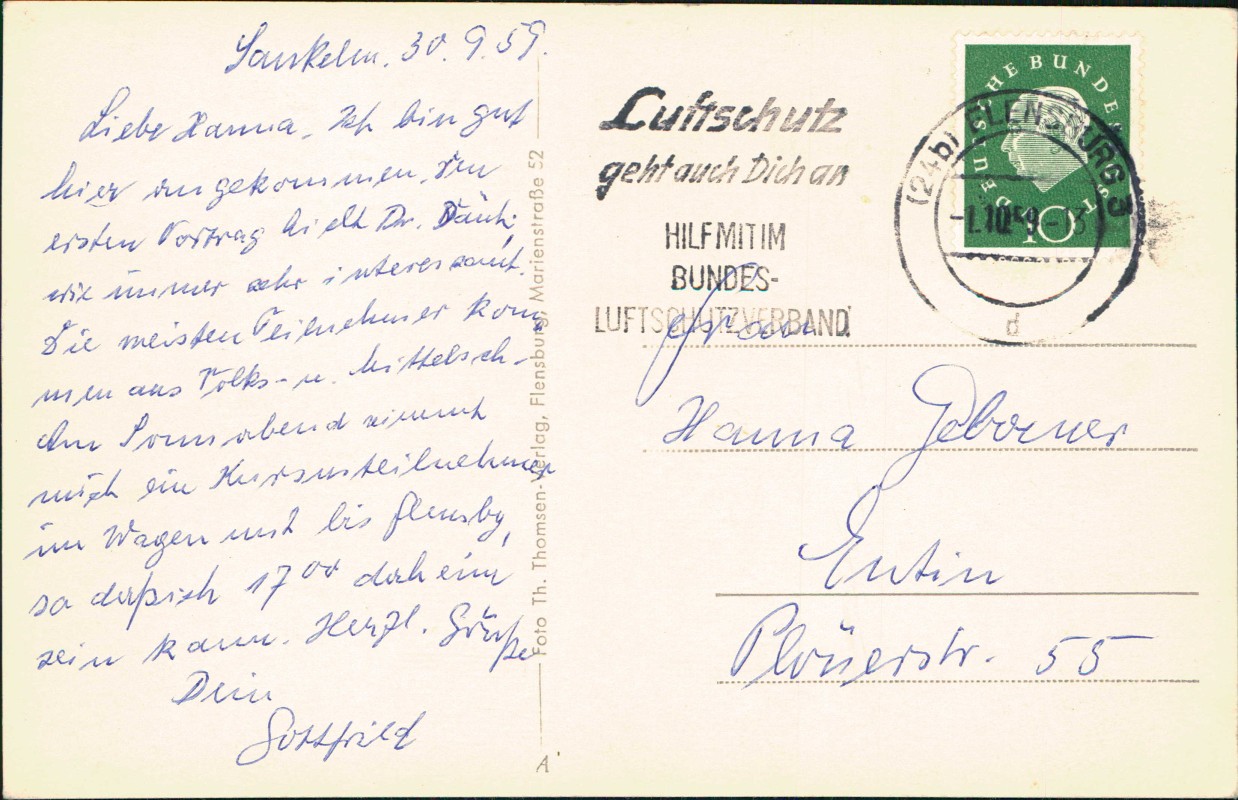 Sankelm. 30.9.59.
Liebe Hanna. Ich bin gut
hier angekommen. Den
ersten Vortrag hielt Dr.
wie immer sehr interessant.
Die meisten Teilnehmer kom
men aus Volks- u. Mittelsch.
Am Sonnabend nimmt
mich ein Kursusteilnehmer
im Wagen mit bis Flensbg,
so daß ich 17⁰⁰ daheim
sein kann. Herzl. Grüße
Dein
Gottfried
Foto Th. Thomsen-Verlag, Flensburg, Marienstraße 52
A
Luftschutz
geht auch Dich an
HILF MIT IM
BUNDES-
LUFTSCHUTZVERBAND
DEUTSCHE BUNDESPOST
10
(24b) FLENSBURG 3
-1.10.59-13
d
Frau
Hanna
Eutin
Plönerstr. 55